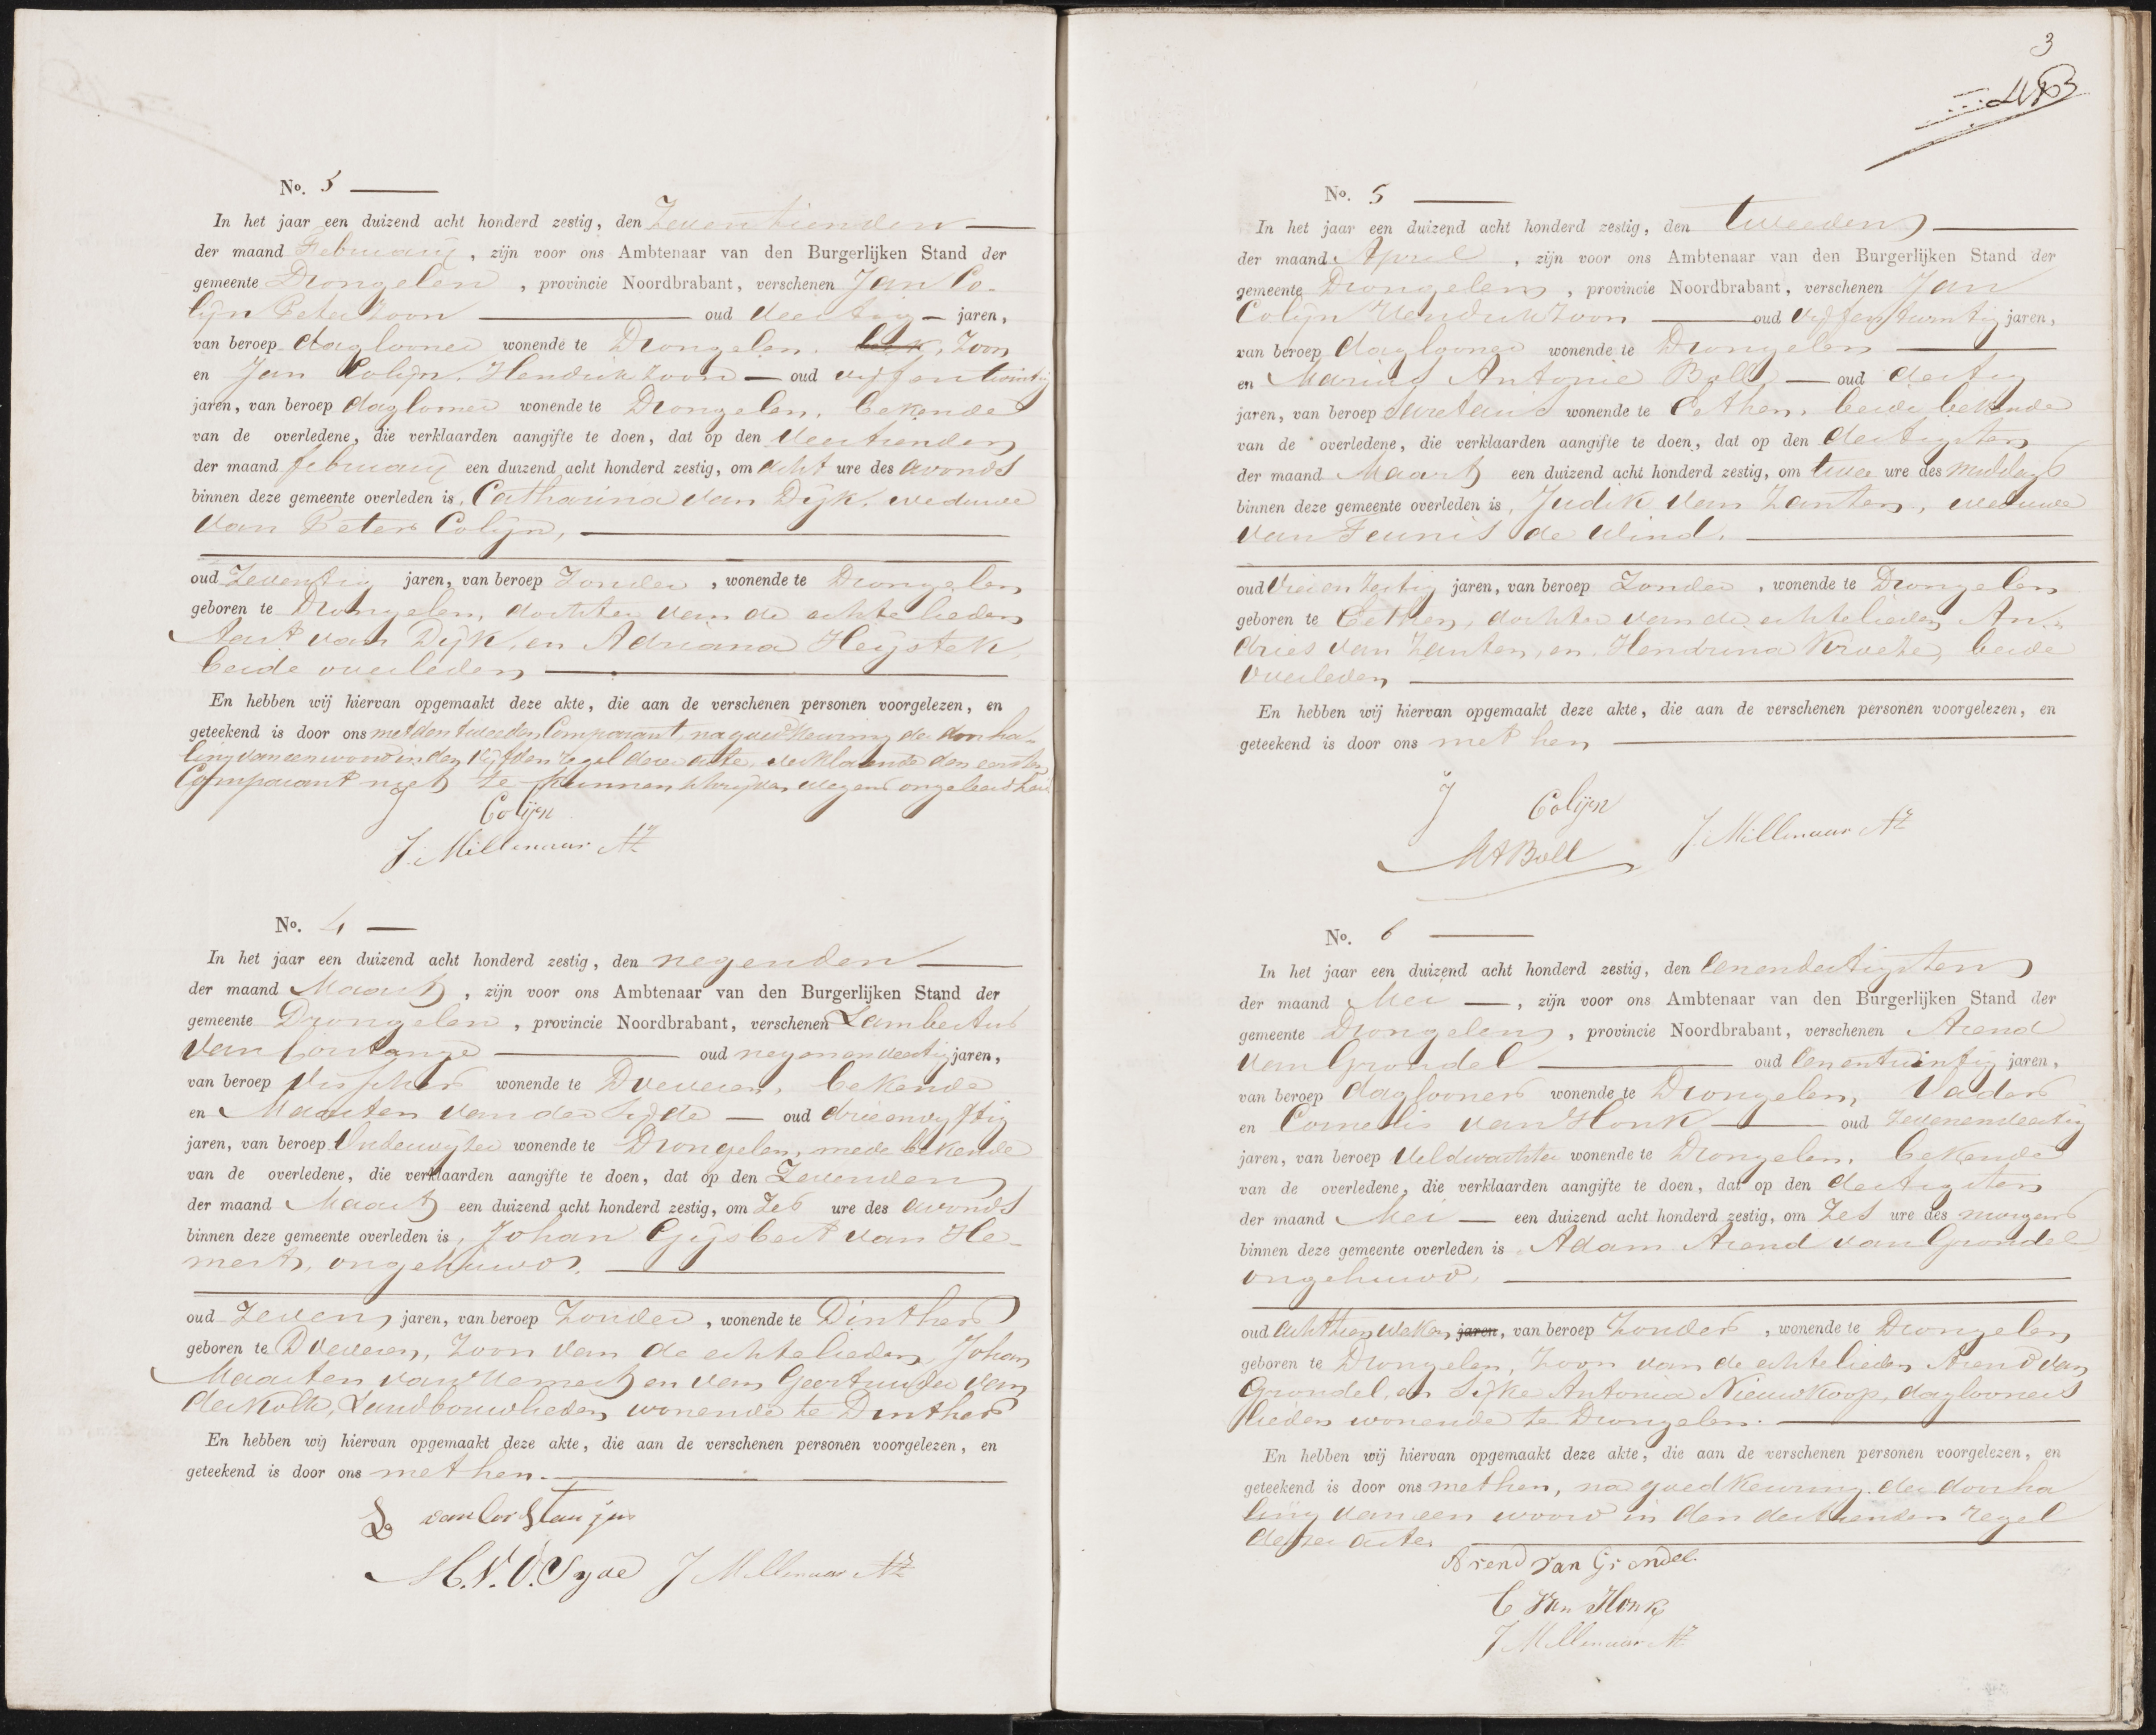 No. 3
In het jaar een duizend acht honderd zestig, den Zeventienden
der maand February, zijn voor ons Ambtenaar van den Burgerlijken Stand der
gemeente Drongelen, provincie Noordbrabant, verschenen Jan Co-
lijn Peterzoon oud veertig jaren,
van beroep daglooner wonende te Drongelen. Zoon
en Jan Colijn Hendrikzoon oud vijfentwintig
jaren, van beroep daglooner wonende te Drongelen, bekende
van de overledene, die verklaarden aangifte te doen, dat op den veertienden
der maand february een duizend acht honderd zestig, om acht ure des avonds
binnen deze gemeente overleden is, Catharina van Dijk, weduwe
van Peter Colijn,
oud Zeventig jaren, van beroep Zonder, wonende te Drongelen
geboren te Drongelen, dochter van de echtelieden
Aart van Dijk, en Adriana Heijstek,
beide overleden
En hebben wij hiervan opgemaakt deze akte, die aan de verschenen personen voorgelezen, en
geteekend is door ons met den tweeden Comparant, na goedkeuring der doorha-
ling van een woord in den vijfden regel dezer acte, verklarende den eersten
Comparant niet te kunnen schrijven wegens ongeleerdheid
J Colijn
J. Millenaar Az
No. 4
In het jaar een duizend acht honderd zestig, den negenden
der maand Maart, zijn voor ons Ambtenaar van den Burgerlijken Stand der
gemeente Drongelen, provincie Noordbrabant, verschenen Lambertus
van oud negenenveertig jaren,
van beroep Visscher wonende te Doeveren, bekende
en Maarten van der Sijde oud drieenvyftig
jaren, van beroep wonende te Drongelen, mede bekende
van de overledene, die verklaarden aangifte te doen, dat op den Zevenden
der maand Maart een duizend acht honderd zestig, om Zes ure des avonds
binnen deze gemeente overleden is, Johan Gijsbert van He-
mert, ongehuwd.
oud Zeven jaren, van beroep Zonder, wonende te Dinther
geboren te Doeveren, Zoon van de echtelieden Johan
Maarten van Hemert en van Geertruida van
der Kolk, Landbouwlieden wonende te Dinther
En hebben wij hiervan opgemaakt deze akte, die aan de verschenen personen voorgelezen, en
geteekend is door ons met hen.
L van
M. V. D. Syde J Millenaar Az
3
No. 5
In het jaar een duizend acht honderd zestig, den tweeden
der maand April, zijn voor ons Ambtenaar van den Burgerlijken Stand der
gemeente Drongelen, provincie Noordbrabant, verschenen Jan
Colijn Hendrikzoon oud vijfentwintig jaren,
van beroep daglooner wonende te Drongelen
en Marinus Antonie Boll oud dertig
jaren, van beroep Secretaris wonende te Eethen, beide bekende
van de overledene, die verklaarden aangifte te doen, dat op den dertigsten
der maand Maart een duizend acht honderd zestig, om twee ure des middags
binnen deze gemeente overleden is, Judik van Zanten, weduwe
van Teunis de Wind.
oud Drieenzestig jaren, van beroep Zonder, wonende te Drongelen
geboren te Eethen, dochter van de echtelieden An-
dries van Zanten, en Hendrina Kroeze, beide
overleden
En hebben wij hiervan opgemaakt deze akte, die aan de verschenen personen voorgelezen, en
geteekend is door ons met hen
J Colijn
MABoll J. Millenaar Az
No. 6
In het jaar een duizend acht honderd zestig, den eenendertigsten
der maand Mei, zijn voor ons Ambtenaar van den Burgerlijken Stand der
gemeente Drongelen, provincie Noordbrabant, verschenen Arend
van Grondel oud eenentwintig jaren,
van beroep daglooner wonende te Drongelen, Vader
en Cornelis van Honk oud Zevenenveertig
jaren, van beroep Veldwachter wonende te Drongelen, bekende
van de overledene, die verklaarden aangifte te doen, dat op den dertigsten
der maand Mei een duizend acht honderd zestig, om Zes ure des morgens
binnen deze gemeente overleden is Adam Arend van Grondel
ongehuwd,
oud achttien weken jaren, van beroep Zonder, wonende te Drongelen
geboren te Drongelen, Zoon van de echtelieden Arend van
Grondel, en Sijke Antonia Nieuwkoop, dagloners
lieden wonende te Drongelen.
En hebben wij hiervan opgemaakt deze akte, die aan de verschenen personen voorgelezen, en
geteekend is door ons met hen, na goedkeuring der doorha
ling van een woord in den dertienden regel
dezer acte.
Arend van Grondel.
C van Honk
J Millenaar Az